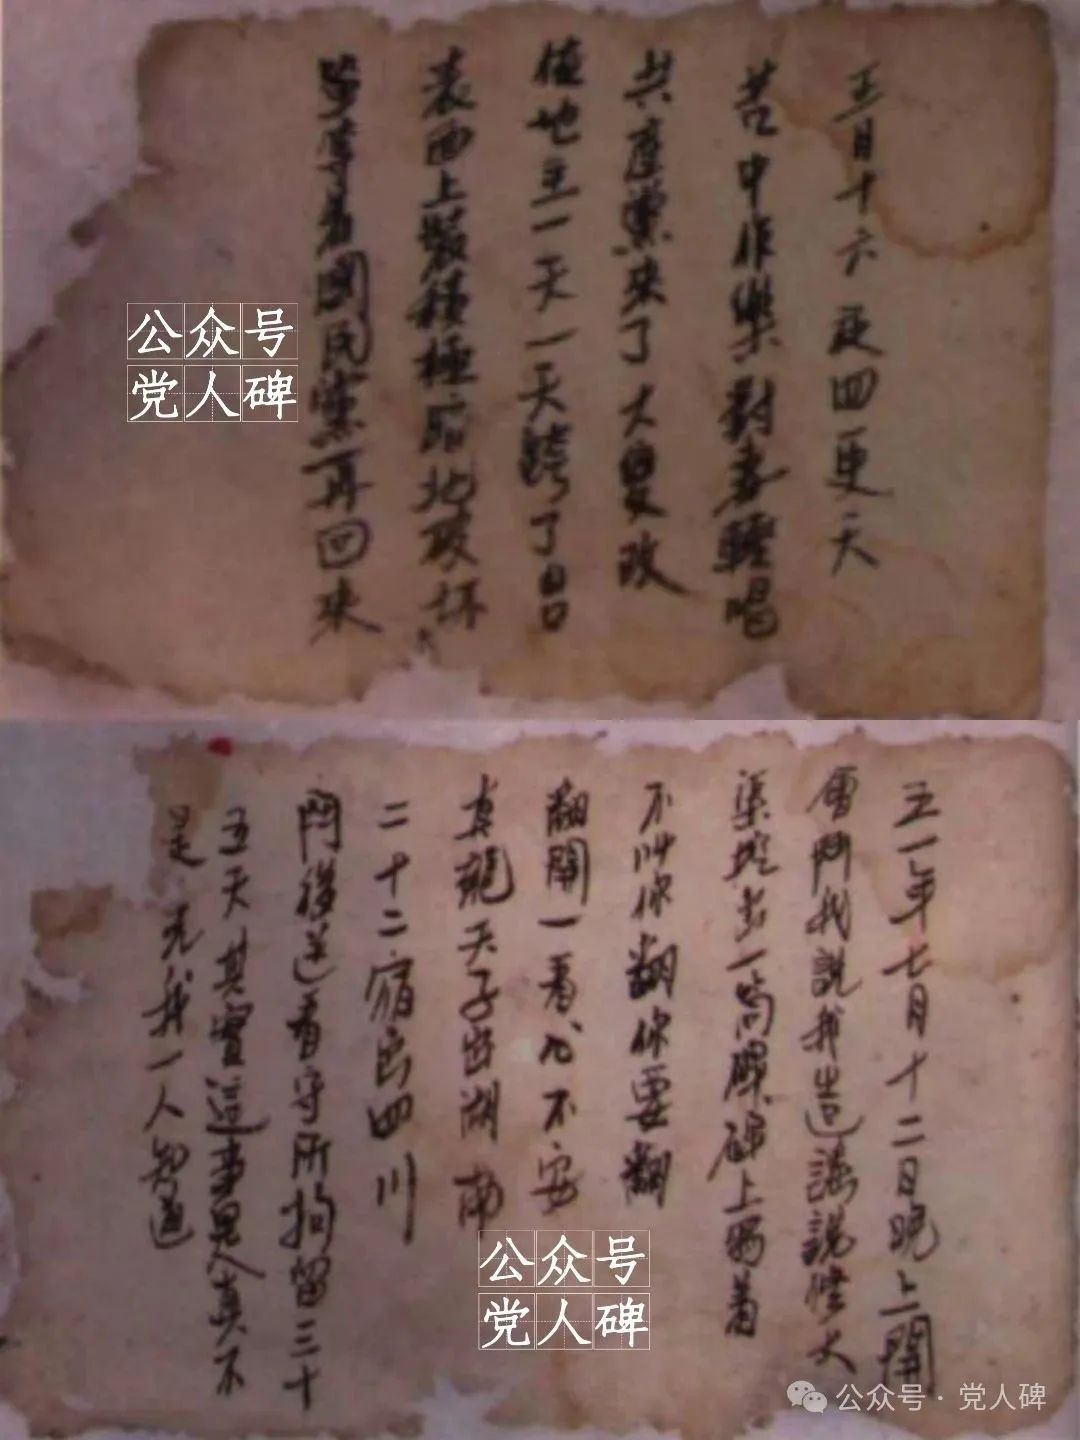 正月十六夜四更天
苦中作樂對妻輕唱
共產黨來了大更改
值地主一天一天跨了台
表面上裝積極暗地破坏
單等着國民黨再回來
公众号
党人碑
五一年七月十二日晚上開
會鬥我說我造謠說修大
渠挖出一馬牌碑上寫着
不叫你翻你要翻
翻開一看心不安
真龍天子出湖南
二十二宿出四川
鬥後送看守所拘留三十
五天其實這事是人真不
是光我一人知道
公众号
党人碑
公众号·党人碑